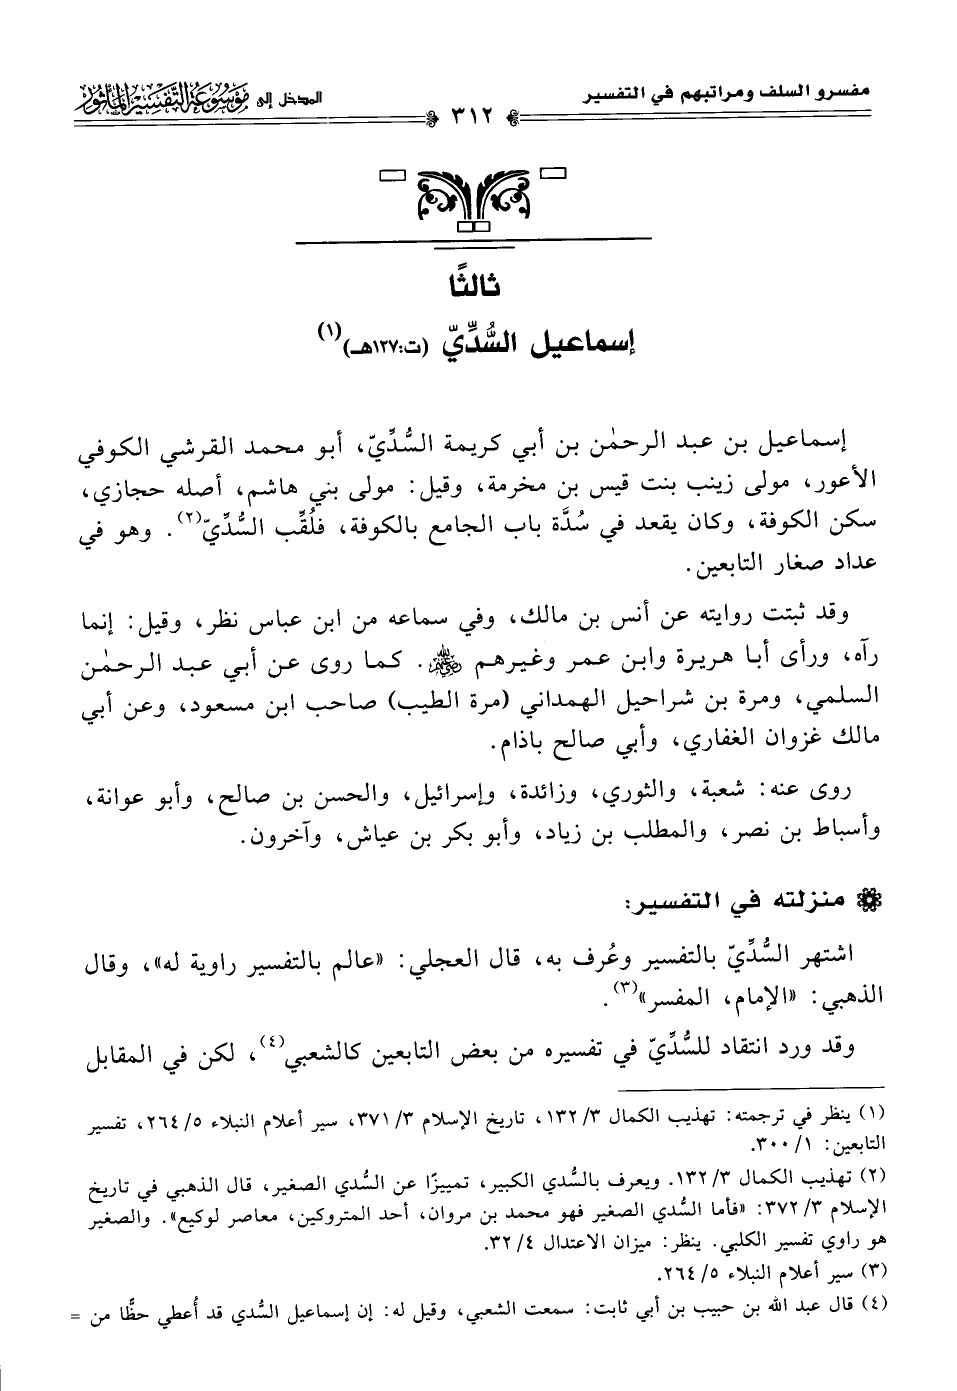 مفسرو السلف ومراتبهم في التفسير
٣١٢
المدخل إلى موسوعة التفسير المأثور
ثالثًا
إسماعيل السُّدِّيّ (ت:١٢٧هـ)(١)
إسماعيل بن عبد الرحمٰن بن أبي كريمة السُّدِّيّ، أبو محمد القرشي الكوفي
الأعور، مولى زينب بنت قيس بن مخرمة، وقيل: مولى بني هاشم، أصله حجازي،
سكن الكوفة، وكان يقعد في سُدَّة باب الجامع بالكوفة، فلُقِّب السُّدِّيّ(٢). وهو في
عداد صغار التابعين.
وقد ثبتت روايته عن أنس بن مالك، وفي سماعه من ابن عباس نظر، وقيل: إنما
رآه، ورأى أبا هريرة وابن عمر وغيرهم ﷺ. كما روى عن أبي عبد الرحمٰن
السلمي، ومرة بن شراحيل الهمداني (مرة الطيب) صاحب ابن مسعود، وعن أبي
مالك غزوان الغفاري، وأبي صالح باذام.
روى عنه: شعبة، والثوري، وزائدة، وإسرائيل، والحسن بن صالح، وأبو عوانة،
وأسباط بن نصر، والمطلب بن زياد، وأبو بكر بن عياش، وآخرون.
منزلته في التفسير:
اشتهر السُّدِّيّ بالتفسير وعُرف به، قال العجلي: «عالم بالتفسير راوية له»، وقال
الذهبي: «الإمام، المفسر»(٣).
وقد ورد انتقاد للسُّدِّيّ في تفسيره من بعض التابعين كالشعبي(٤)، لكن في المقابل
(١) ينظر في ترجمته: تهذيب الكمال ٣/ ١٣٢، تاريخ الإسلام ٣/ ٣٧١، سير أعلام النبلاء ٥/ ٢٦٤، تفسير
التابعين: ١/ ٣٠٠.
(٢) تهذيب الكمال ٣/ ١٣٢. ويعرف بالسُّدي الكبير، تمييزًا عن السُّدي الصغير، قال الذهبي في تاريخ
الإسلام ٣/ ٣٧٢: «فأما السُّدي الصغير فهو محمد بن مروان، أحد المتروكين، معاصر لوكيع». والصغير
هو راوي تفسير الكلبي. ينظر: ميزان الاعتدال ٤/ ٣٢.
(٣) سير أعلام النبلاء ٥/ ٢٦٤.
(٤) قال عبد الله بن حبيب بن أبي ثابت: سمعت الشعبي، وقيل له: إن إسماعيل السُّدي قد أُعطي حظًّا من =